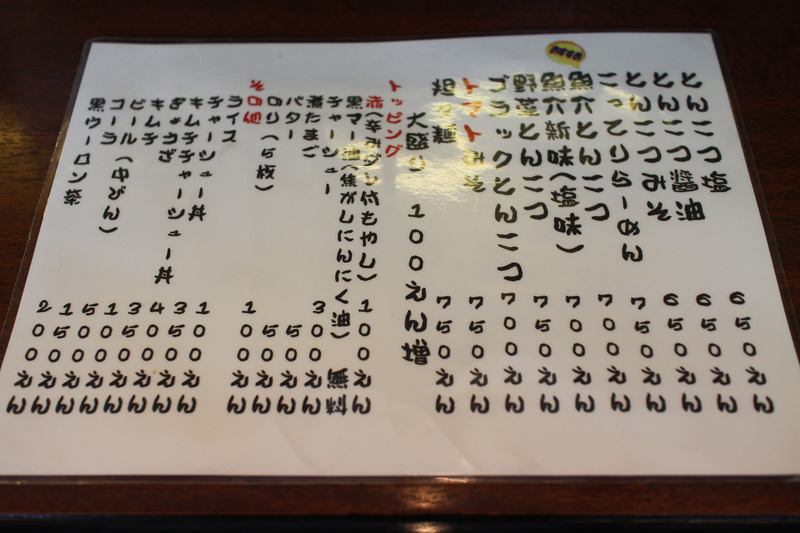 とんこつ塩 650えん
とんこつ醤油 650えん
とんこつみそ 650えん
こってりらーめん 750えん
おすすめ
魚介とんこつ 700えん
魚介新味(塩味) 700えん
野菜とんこつ 750えん
ブラックとんこつ 700えん
トマトみそ 750えん
坦々麺 750えん
大盛り 100えん増
トッピング
赤(辛みダシ付もやし) 100えん
黒マー油(焦がしにんにく油) 無料
チャーシュー 300えん
煮たまご 50えん
バター 50えん
のり(5枚) 100えん
その他
ライス 100えん
チャーシュー丼 350えん
キムチチャーシュー丼 400えん
ぎょうざ 350えん
キムチ 100えん
ビール(中びん) 500えん
コーラ 150えん
黒ウーロン茶 200えん